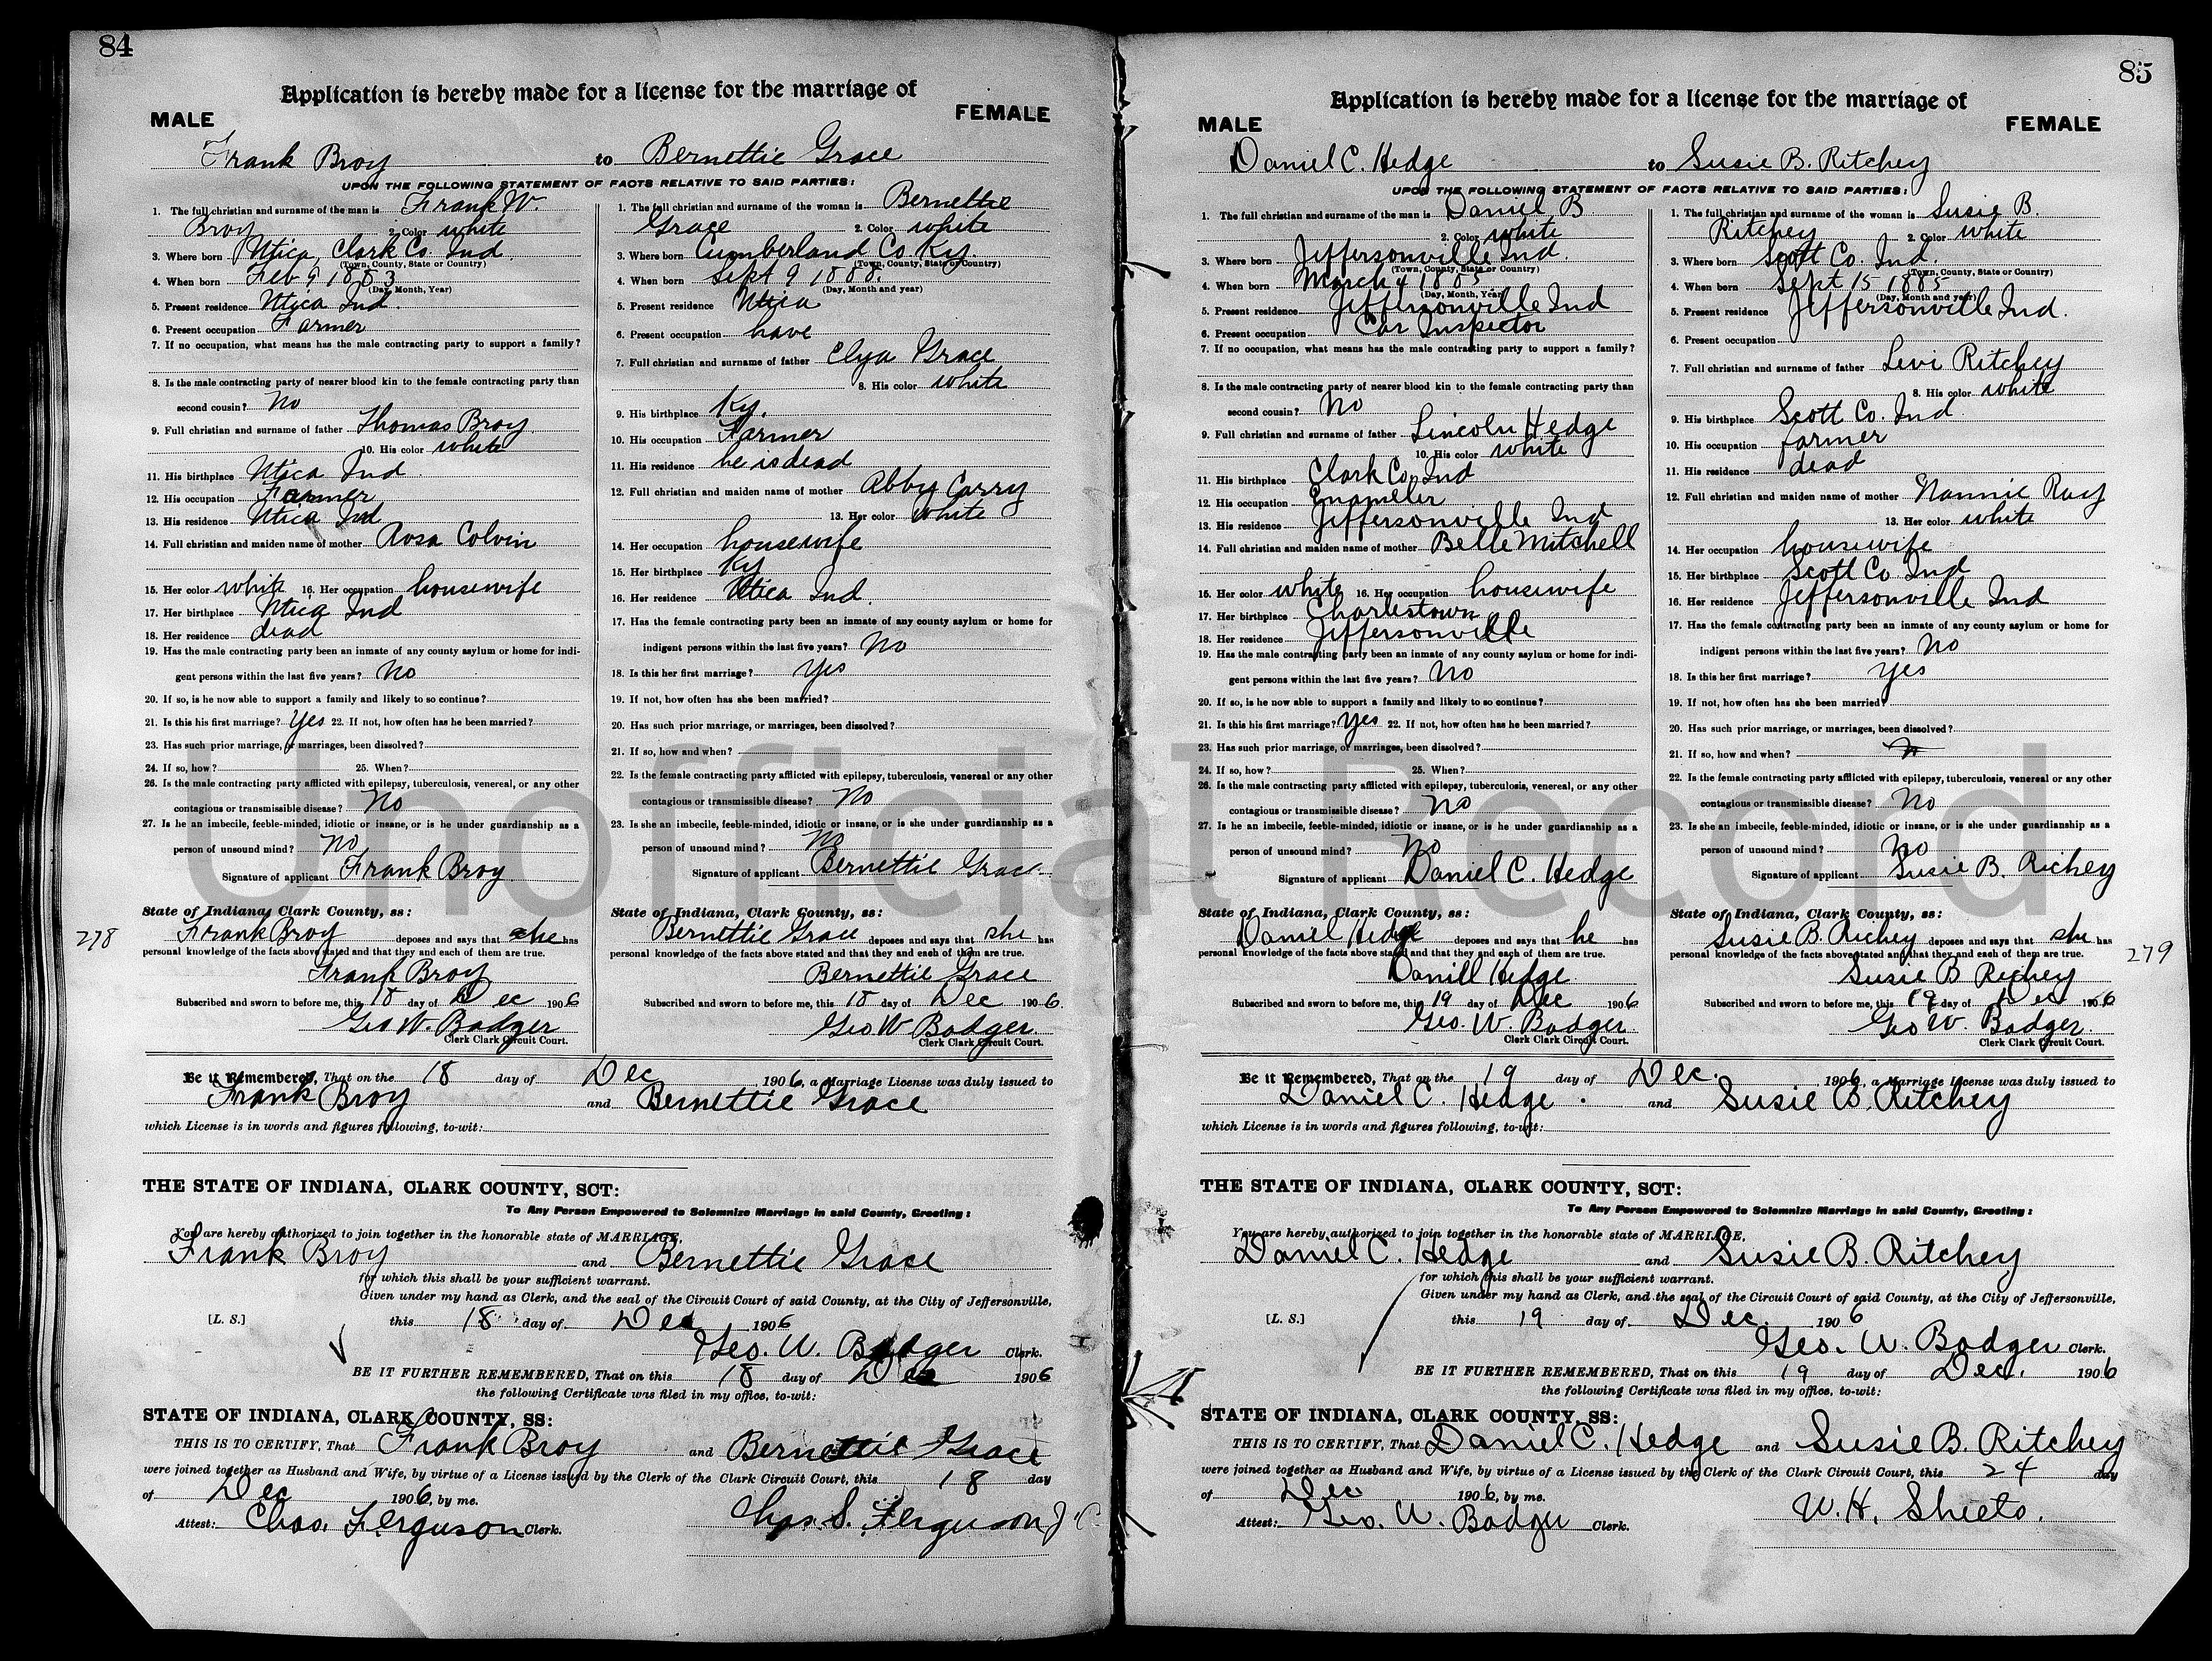 84
Application is hereby made for a license for the marriage of
MALE
FEMALE
Frank Broy to Bernettie Grace
UPON THE FOLLOWING STATEMENT OF FACTS RELATIVE TO SAID PARTIES:
1. The full christian and surname of the man is Frank W.
Broy 2. Color white
3. Where born Utica, Clark Co. Ind.
(Town, County, State or Country)
4. When born Feb 9 1883
(Day, Month, Year)
5. Present residence Utica Ind.
6. Present occupation Farmer
7. If no occupation, what means has the male contracting party to support a family?
8. Is the male contracting party of nearer blood kin to the female contracting party than
second cousin? No
9. Full christian and surname of father Thomas Broy
10. His color white
11. His birthplace Utica Ind
12. His occupation Farmer
13. His residence Utica Ind
14. Full christian and maiden name of mother Rosa Colvin
15. Her color white 16. Her occupation housewife
17. Her birthplace Utica Ind
18. Her residence dead
19. Has the male contracting party been an inmate of any county asylum or home for indi-
gent persons within the last five years? No
20. If so, is he now able to support a family and likely to so continue?
21. Is this his first marriage? Yes 22. If not, how often has he been married?
23. Has such prior marriage, or marriages, been dissolved?
24. If so, how? 25. When?
26. Is the male contracting party afflicted with epilepsy, tuberculosis, venereal, or any other
contagious or transmissible disease? No
27. Is he an imbecile, feeble-minded, idiotic or insane, or is he under guardianship as a
person of unsound mind? No
Signature of applicant Frank Broy
State of Indiana, Clark County, ss:
278
Frank Broy deposes and says that he has
personal knowledge of the facts above stated and that they and each of them are true.
Frank Broy
Subscribed and sworn to before me, this 18 day of Dec 1906
Geo W. Badger
Clerk Clark Circuit Court.
1. The full christian and surname of the woman is Bernettie
Grace 2. Color white
3. Where born Cumberland Co Ky.
(Town, County, State or Country)
4. When born Sept 9 1888.
(Day, Month and year)
5. Present residence Utica
6. Present occupation have
7. Full christian and surname of father Elya Grace
8. His color white
9. His birthplace Ky.
10. His occupation Farmer
11. His residence he is dead
12. Full christian and maiden name of mother Abby Carry
13. Her color white
14. Her occupation housewife
15. Her birthplace Ky
16. Her residence Utica Ind.
17. Has the female contracting party been an inmate of any county asylum or home for
indigent persons within the last five years? No
18. Is this her first marriage? yes
19. If not, how often has she been married?
20. Has such prior marriage, or marriages, been dissolved?
21. If so, how and when?
22. Is the female contracting party afflicted with epilepsy, tuberculosis, venereal or any other
contagious or transmissible disease? No
23. Is she an imbecile, feeble-minded, idiotic or insane, or is she under guardianship as a
person of unsound mind? No
Signature of applicant Bernettie Grace
State of Indiana, Clark County, ss:
Bernettie Grace deposes and says that she has
personal knowledge of the facts above stated and that they and each of them are true.
Bernettie Grace
Subscribed and sworn to before me, this 18 day of Dec 1906.
Geo W Badger
Clerk Clark Circuit Court.
Be it Remembered, That on the 18 day of Dec 1906, a Marriage License was duly issued to
Frank Broy and Bernettie Grace
which License is in words and figures following, to-wit:
THE STATE OF INDIANA, CLARK COUNTY, SCT:
To Any Person Empowered to Solemnize Marriage in said County, Greeting:
You are hereby authorized to join together in the honorable state of MARRIAGE,
Frank Broy and Bernettie Grace
for which this shall be your sufficient warrant.
Given under my hand as Clerk, and the seal of the Circuit Court of said County, at the City of Jeffersonville,
[L. S.] this 18 day of Dec 1906
Geo. W. Badger Clerk.
BE IT FURTHER REMEMBERED, That on this 18 day of Dec 1906
the following Certificate was filed in my office, to-wit:
STATE OF INDIANA, CLARK COUNTY, SS:
THIS IS TO CERTIFY, That Frank Broy and Bernettie Grace
were joined together as Husband and Wife, by virtue of a License issued by the Clerk of the Clark Circuit Court, this 18 day
of Dec 1906, by me.
Chas. S. Ferguson J. C.
Attest: Chas. Ferguson Clerk.
85
Application is hereby made for a license for the marriage of
MALE
FEMALE
Daniel C. Hedge to Susie B. Ritchey
UPON THE FOLLOWING STATEMENT OF FACTS RELATIVE TO SAID PARTIES:
1. The full christian and surname of the man is Daniel B.
2. Color white
3. Where born Jeffersonville Ind.
(Town, County, State or Country)
4. When born March 4 1885
(Day, Month, Year)
5. Present residence Jeffersonville Ind
6. Present occupation Car Inspector
7. If no occupation, what means has the male contracting party to support a family?
8. Is the male contracting party of nearer blood kin to the female contracting party than
second cousin? No
9. Full christian and surname of father Lincoln Hedge
10. His color white
11. His birthplace Clark Co. Ind
12. His occupation Enameler
13. His residence Jeffersonville Ind
14. Full christian and maiden name of mother Belle Mitchell
15. Her color white 16. Her occupation housewife
17. Her birthplace Charlestown
18. Her residence Jeffersonville
19. Has the male contracting party been an inmate of any county asylum or home for indi-
gent persons within the last five years? No
20. If so, is he now able to support a family and likely to so continue?
21. Is this his first marriage? Yes 22. If not, how often has he been married?
23. Has such prior marriage, or marriages, been dissolved?
24. If so, how? 25. When?
26. Is the male contracting party afflicted with epilepsy, tuberculosis, venereal, or any other
contagious or transmissible disease? No
27. Is he an imbecile, feeble-minded, idiotic or insane, or is he under guardianship as a
person of unsound mind? No
Signature of applicant Daniel C. Hedge
State of Indiana, Clark County, ss:
Daniel Hedge deposes and says that he has
personal knowledge of the facts above stated and that they and each of them are true.
Daniel Hedge
Subscribed and sworn to before me, this 19 day of Dec 1906
Geo. W. Badger
Clerk Clark Circuit Court.
1. The full christian and surname of the woman is Susie B.
Ritchey 2. Color white
3. Where born Scott Co. Ind.
(Town, County, State or Country)
4. When born Sept 15 1885
(Day, Month and year)
5. Present residence Jeffersonville Ind.
6. Present occupation
7. Full christian and surname of father Levi Ritchey
8. His color white
9. His birthplace Scott Co. Ind
10. His occupation farmer
11. His residence dead
12. Full christian and maiden name of mother Nannie Ray
13. Her color white
14. Her occupation housewife
15. Her birthplace Scott Co Ind
16. Her residence Jeffersonville Ind
17. Has the female contracting party been an inmate of any county asylum or home for
indigent persons within the last five years? No
18. Is this her first marriage? yes
19. If not, how often has she been married?
20. Has such prior marriage, or marriages, been dissolved?
21. If so, how and when?
22. Is the female contracting party afflicted with epilepsy, tuberculosis, venereal or any other
contagious or transmissible disease? No
23. Is she an imbecile, feeble-minded, idiotic or insane, or is she under guardianship as a
person of unsound mind? No
Signature of applicant Susie B. Richey
State of Indiana, Clark County, ss:
Susie B. Richey deposes and says that she has
279
personal knowledge of the facts above stated and that they and each of them are true.
Susie B Richey
Subscribed and sworn to before me, this 19 day of Dec 1906
Geo W. Badger.
Clerk Clark Circuit Court.
Be it Remembered, That on the 19 day of Dec. 1906, a Marriage License was duly issued to
Daniel C. Hedge and Susie B. Ritchey
which License is in words and figures following, to-wit:
THE STATE OF INDIANA, CLARK COUNTY, SCT:
To Any Person Empowered to Solemnize Marriage in said County, Greeting:
You are hereby authorized to join together in the honorable state of MARRIAGE,
Daniel C. Hedge and Susie B. Ritchey
for which this shall be your sufficient warrant.
Given under my hand as Clerk, and the seal of the Circuit Court of said County, at the City of Jeffersonville,
[L. S.] this 19 day of Dec. 1906
Geo. W. Badger Clerk.
BE IT FURTHER REMEMBERED, That on this 19 day of Dec. 1906
the following Certificate was filed in my office, to-wit:
STATE OF INDIANA, CLARK COUNTY, SS:
THIS IS TO CERTIFY, That Daniel C. Hedge and Susie B. Ritchey
were joined together as Husband and Wife, by virtue of a License issued by the Clerk of the Clark Circuit Court, this 24 day
of Dec 1906, by me.
W. H. Sheets.
Attest: Geo. W. Badger Clerk.
Unofficial Record